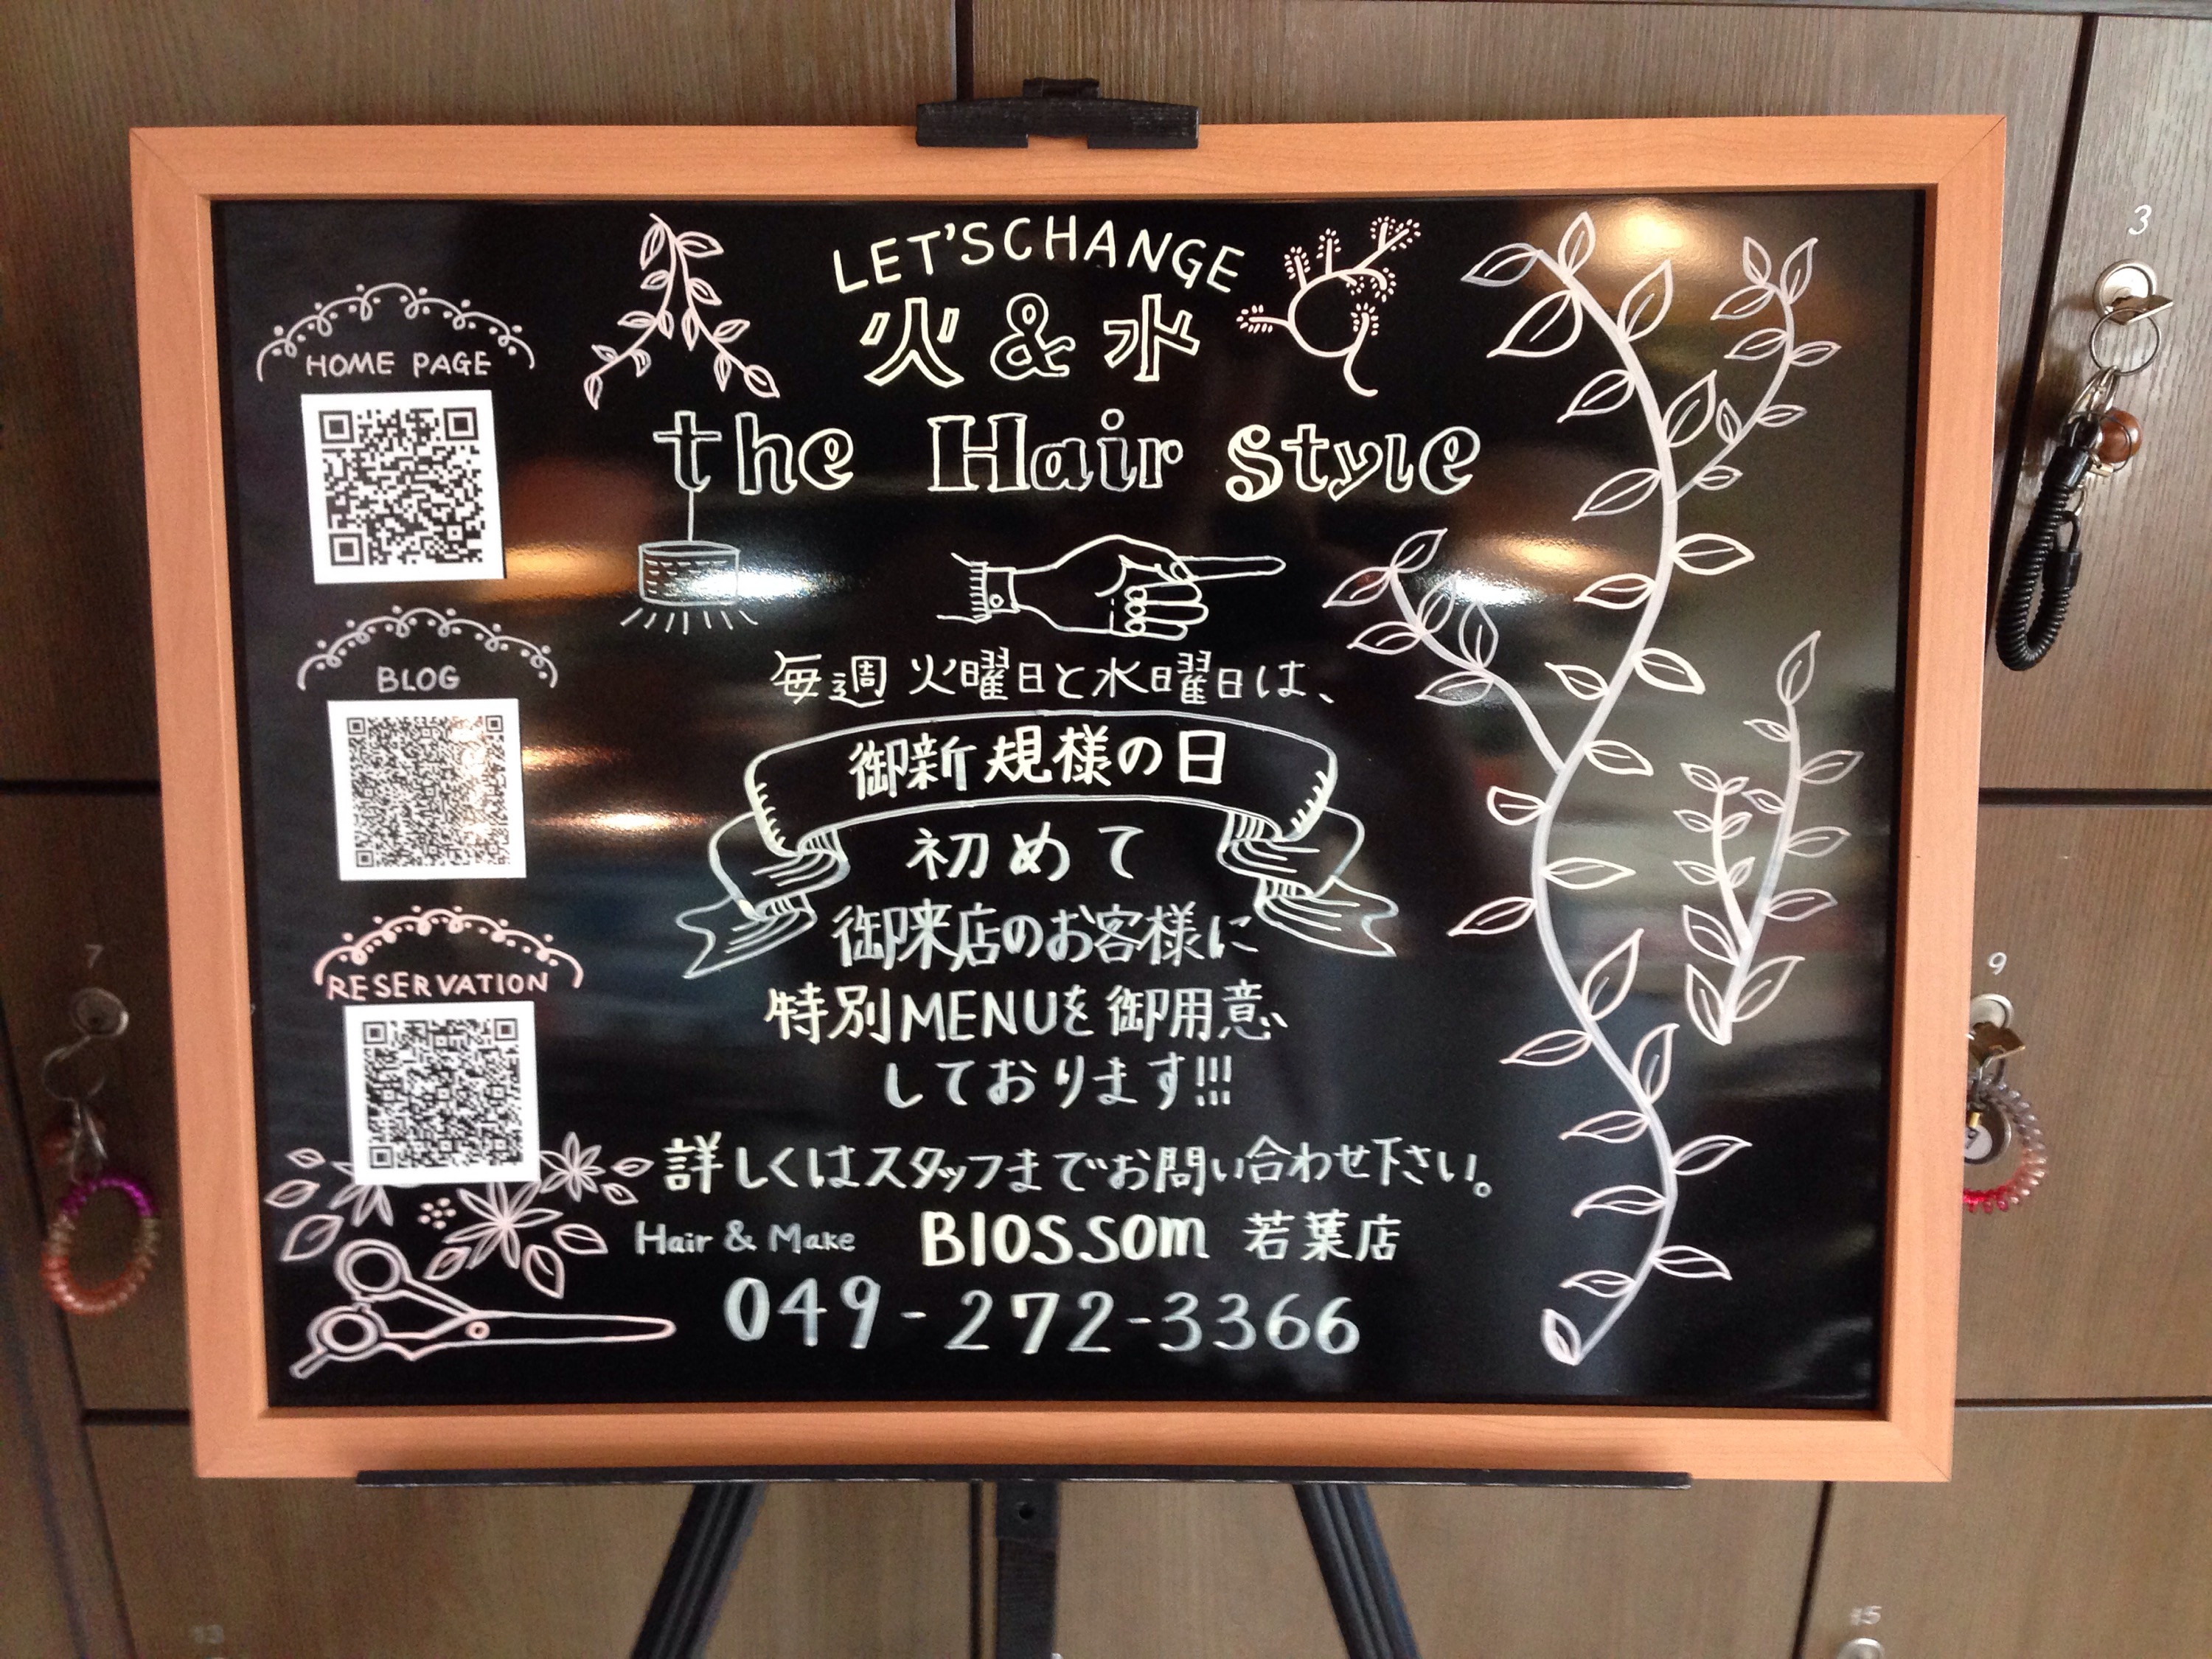 LET'S CHANGE
火 & 水
the Hair Style
HOME PAGE
BLOG
RESERVATION
毎週 火曜日と水曜日は、
御新規様の日
初めて
御来店のお客様に
特別MENUを御用意
しております!!!
詳しくはスタッフまでお問い合わせ下さい。
Hair & Make Blossom 若葉店
049-272-3366
3
7
9
13
15